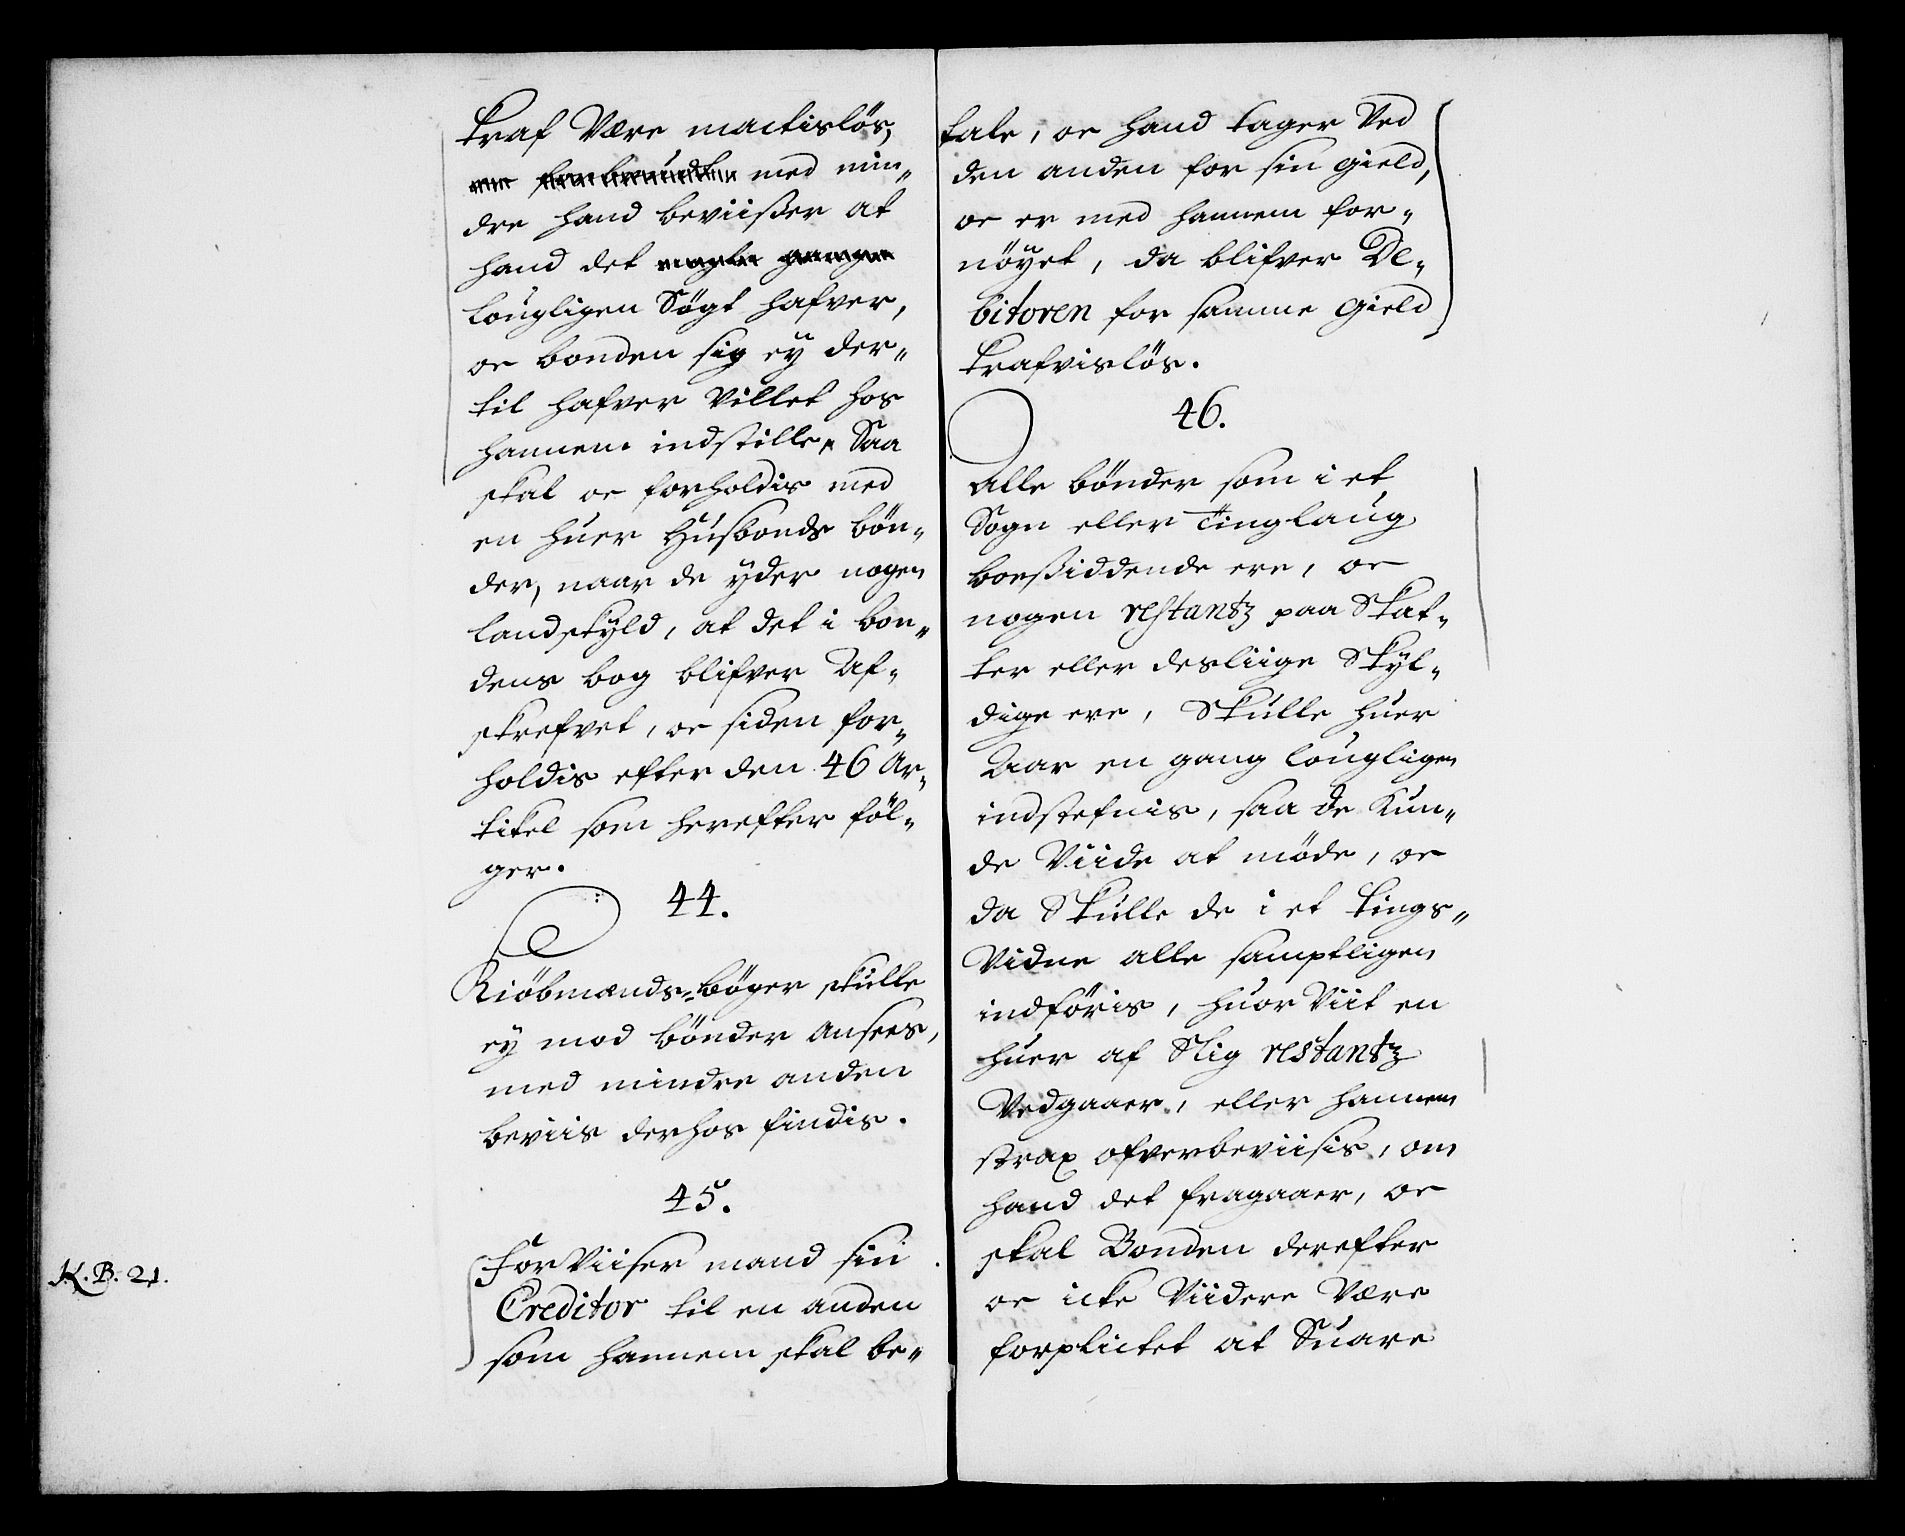 kraf Være mactisløs,
med min-
dre hand beviisser at
hand det
lougligen Søgt hafver,
oc bonden sig ey der-
til hafver Villet hos
hannem indstille. Saa
skal oc forholdis med
en huer Husbonds bøn-
der, naar de yder nogen
landskyld, at det i bon-
dens bog blifver Af-
skrefvet, oc siden for-
holdis efter den 46 Ar-
tikel som herefter føl-
ger.
44.
Kiøbmænds-bøger skulle
ey mod bønder ansees,
med mindre anden
beviis derhos findis.
45.
ForViiser mand sin
K. B. 21.
Creditor til en anden
som hannem skal be-
tale, oc hand tager Ved
den anden for sin gield,
oc er med hannem for-
nøyet, da blifver De-
bitoren for samme gield
krafvisløs.
46.
Alle bønder som i et
Sogn eller Tinglaug
boessiddende ere, oc
nogen restantz paa Skat-
ter eller desliige Skyl-
dige ere, Skulle huer
Aar en gang lougligen
indstefnis, saa de Kun-
de Viide at møde, oc
da Skulle de i et tings-
Vidne alle samptligen
indføris, huor Viit en
huer af Slig restantz
Vedgaaer, eller hannem
strax ofverbeviisis, om
hand det fragaaer, oc
skal Bonden derefter
oc icke Viidere Være
forplictet at Suare